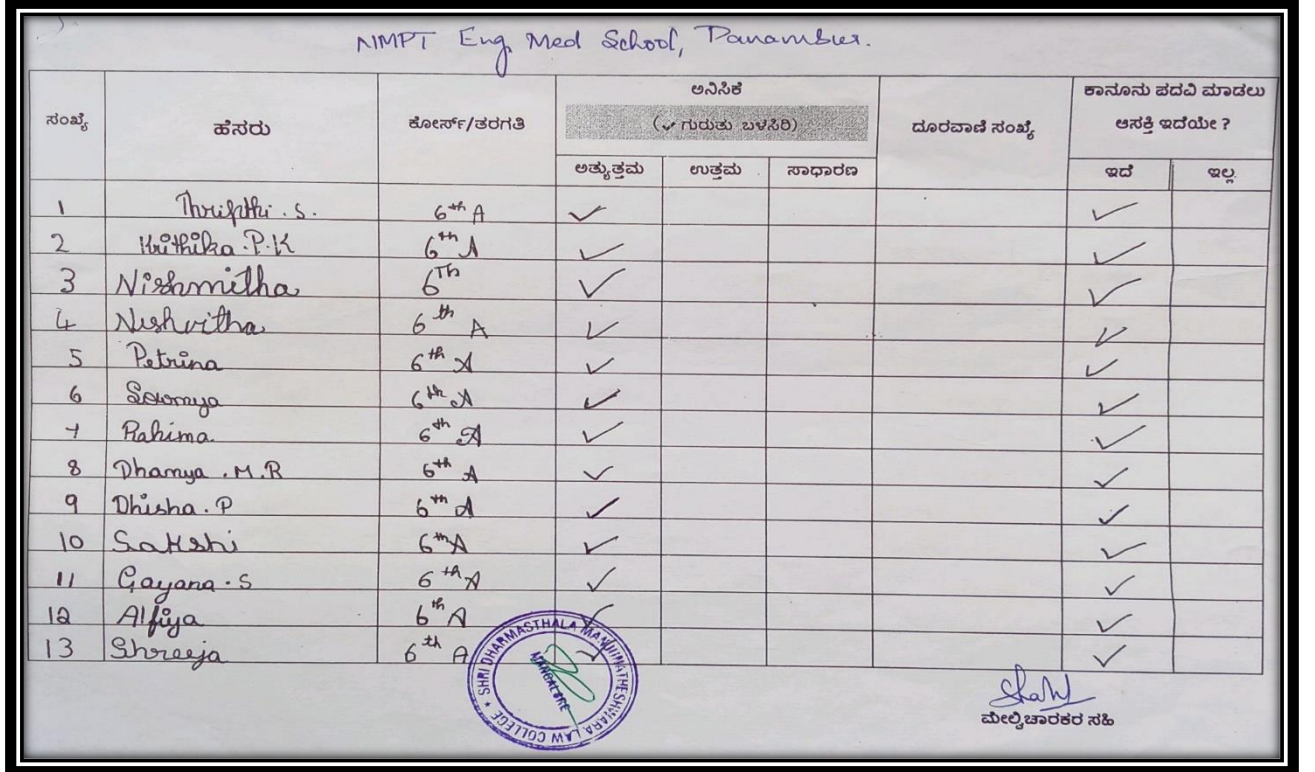 NMPT Eng Med School, Panambur.
ಸಂಖ್ಯೆ ಹೆಸರು ಕೋರ್ಸ್/ತರಗತಿ ಅನಿಸಿಕೆ (✓ ಗುರುತು ಬಳಸಿರಿ) ದೂರವಾಣಿ ಸಂಖ್ಯೆ ಕಾನೂನು ಪದವಿ ಮಾಡಲು ಆಸಕ್ತಿ ಇದೆಯೇ ?
ಅತ್ಯುತ್ತಮ ಉತ್ತಮ ಸಾಧಾರಣ ಇದೆ ಇಲ್ಲ
1 Thripthi . S. 6th A ✓ ✓
2 Krithika . P. K 6th A ✓ ✓
3 Nishmitha 6Th ✓ ✓
4 Nishvitha 6th A ✓ ✓
5 Petrina 6th A ✓ ✓
6 Sowmya 6th A ✓ ✓
7 Rahima 6th A ✓ ✓
8 Dhanya . M. R 6th A ✓ ✓
9 Dhisha . P 6th A ✓ ✓
10 Sakshi 6th A ✓ ✓
11 Gayana . S 6th A ✓ ✓
12 Alfiya 6th A ✓ ✓
13 Shreeja 6th A ✓ ✓
SHRI DHARMASTHALA MANJUNATHESHWARA LAW COLLEGE ★
MANGALORE
ಮೇಲ್ವಿಚಾರಕರ ಸಹಿ